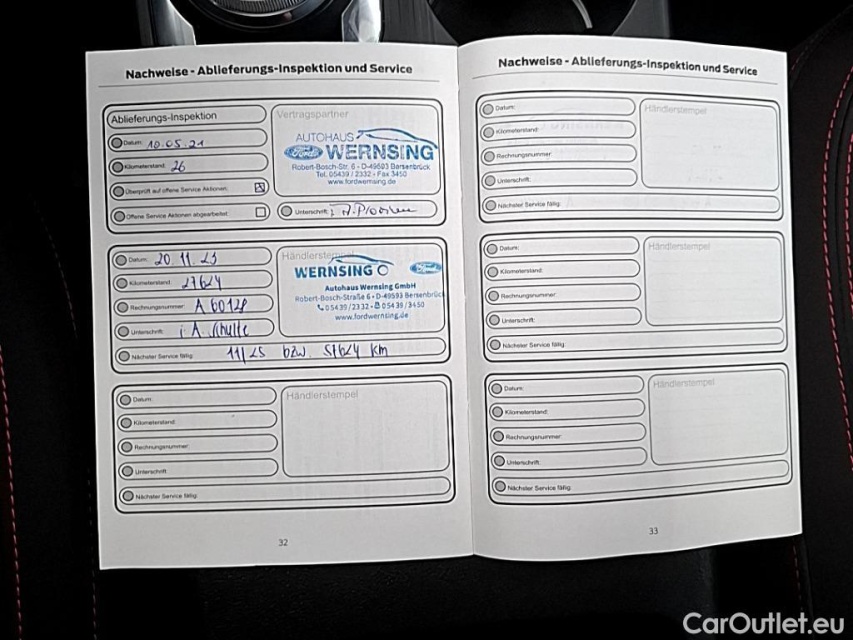 Nachweise - Ablieferungs-Inspektion und Service
Ablieferungs-Inspektion
Datum: 10.05.21
Kilometerstand: 26
Überprüft auf offene Service Aktionen:
Offene Service Aktionen abgearbeitet:
Vertragspartner
AUTOHAUS
Ford WERNSING
Robert-Bosch-Str. 6 - D-49593 Bersenbrück
Tel. 05439 / 2332 - Fax 3450
www.fordwernsing.de
Unterschrift:
Datum: 20.11.23
Kilometerstand: 27624
Rechnungsnummer: A60128
Unterschrift: i.A. Schulte
Nächster Service fällig: 11/25 bzw. 57624 km
Händlerstempel
WERNSING Ford
Autohaus Wernsing GmbH
Robert-Bosch-Straße 6 - D-49593 Bersenbrück
05439/2332 - 05439/3450
www.fordwernsing.de
Datum:
Kilometerstand:
Rechnungsnummer:
Unterschrift:
Nächster Service fällig:
Händlerstempel
32
Nachweise - Ablieferungs-Inspektion und Service
Datum:
Kilometerstand:
Rechnungsnummer:
Unterschrift:
Nächster Service fällig:
Händlerstempel
Datum:
Kilometerstand:
Rechnungsnummer:
Unterschrift:
Nächster Service fällig:
Händlerstempel
Datum:
Kilometerstand:
Rechnungsnummer:
Unterschrift:
Nächster Service fällig:
Händlerstempel
33
CarOutlet.eu